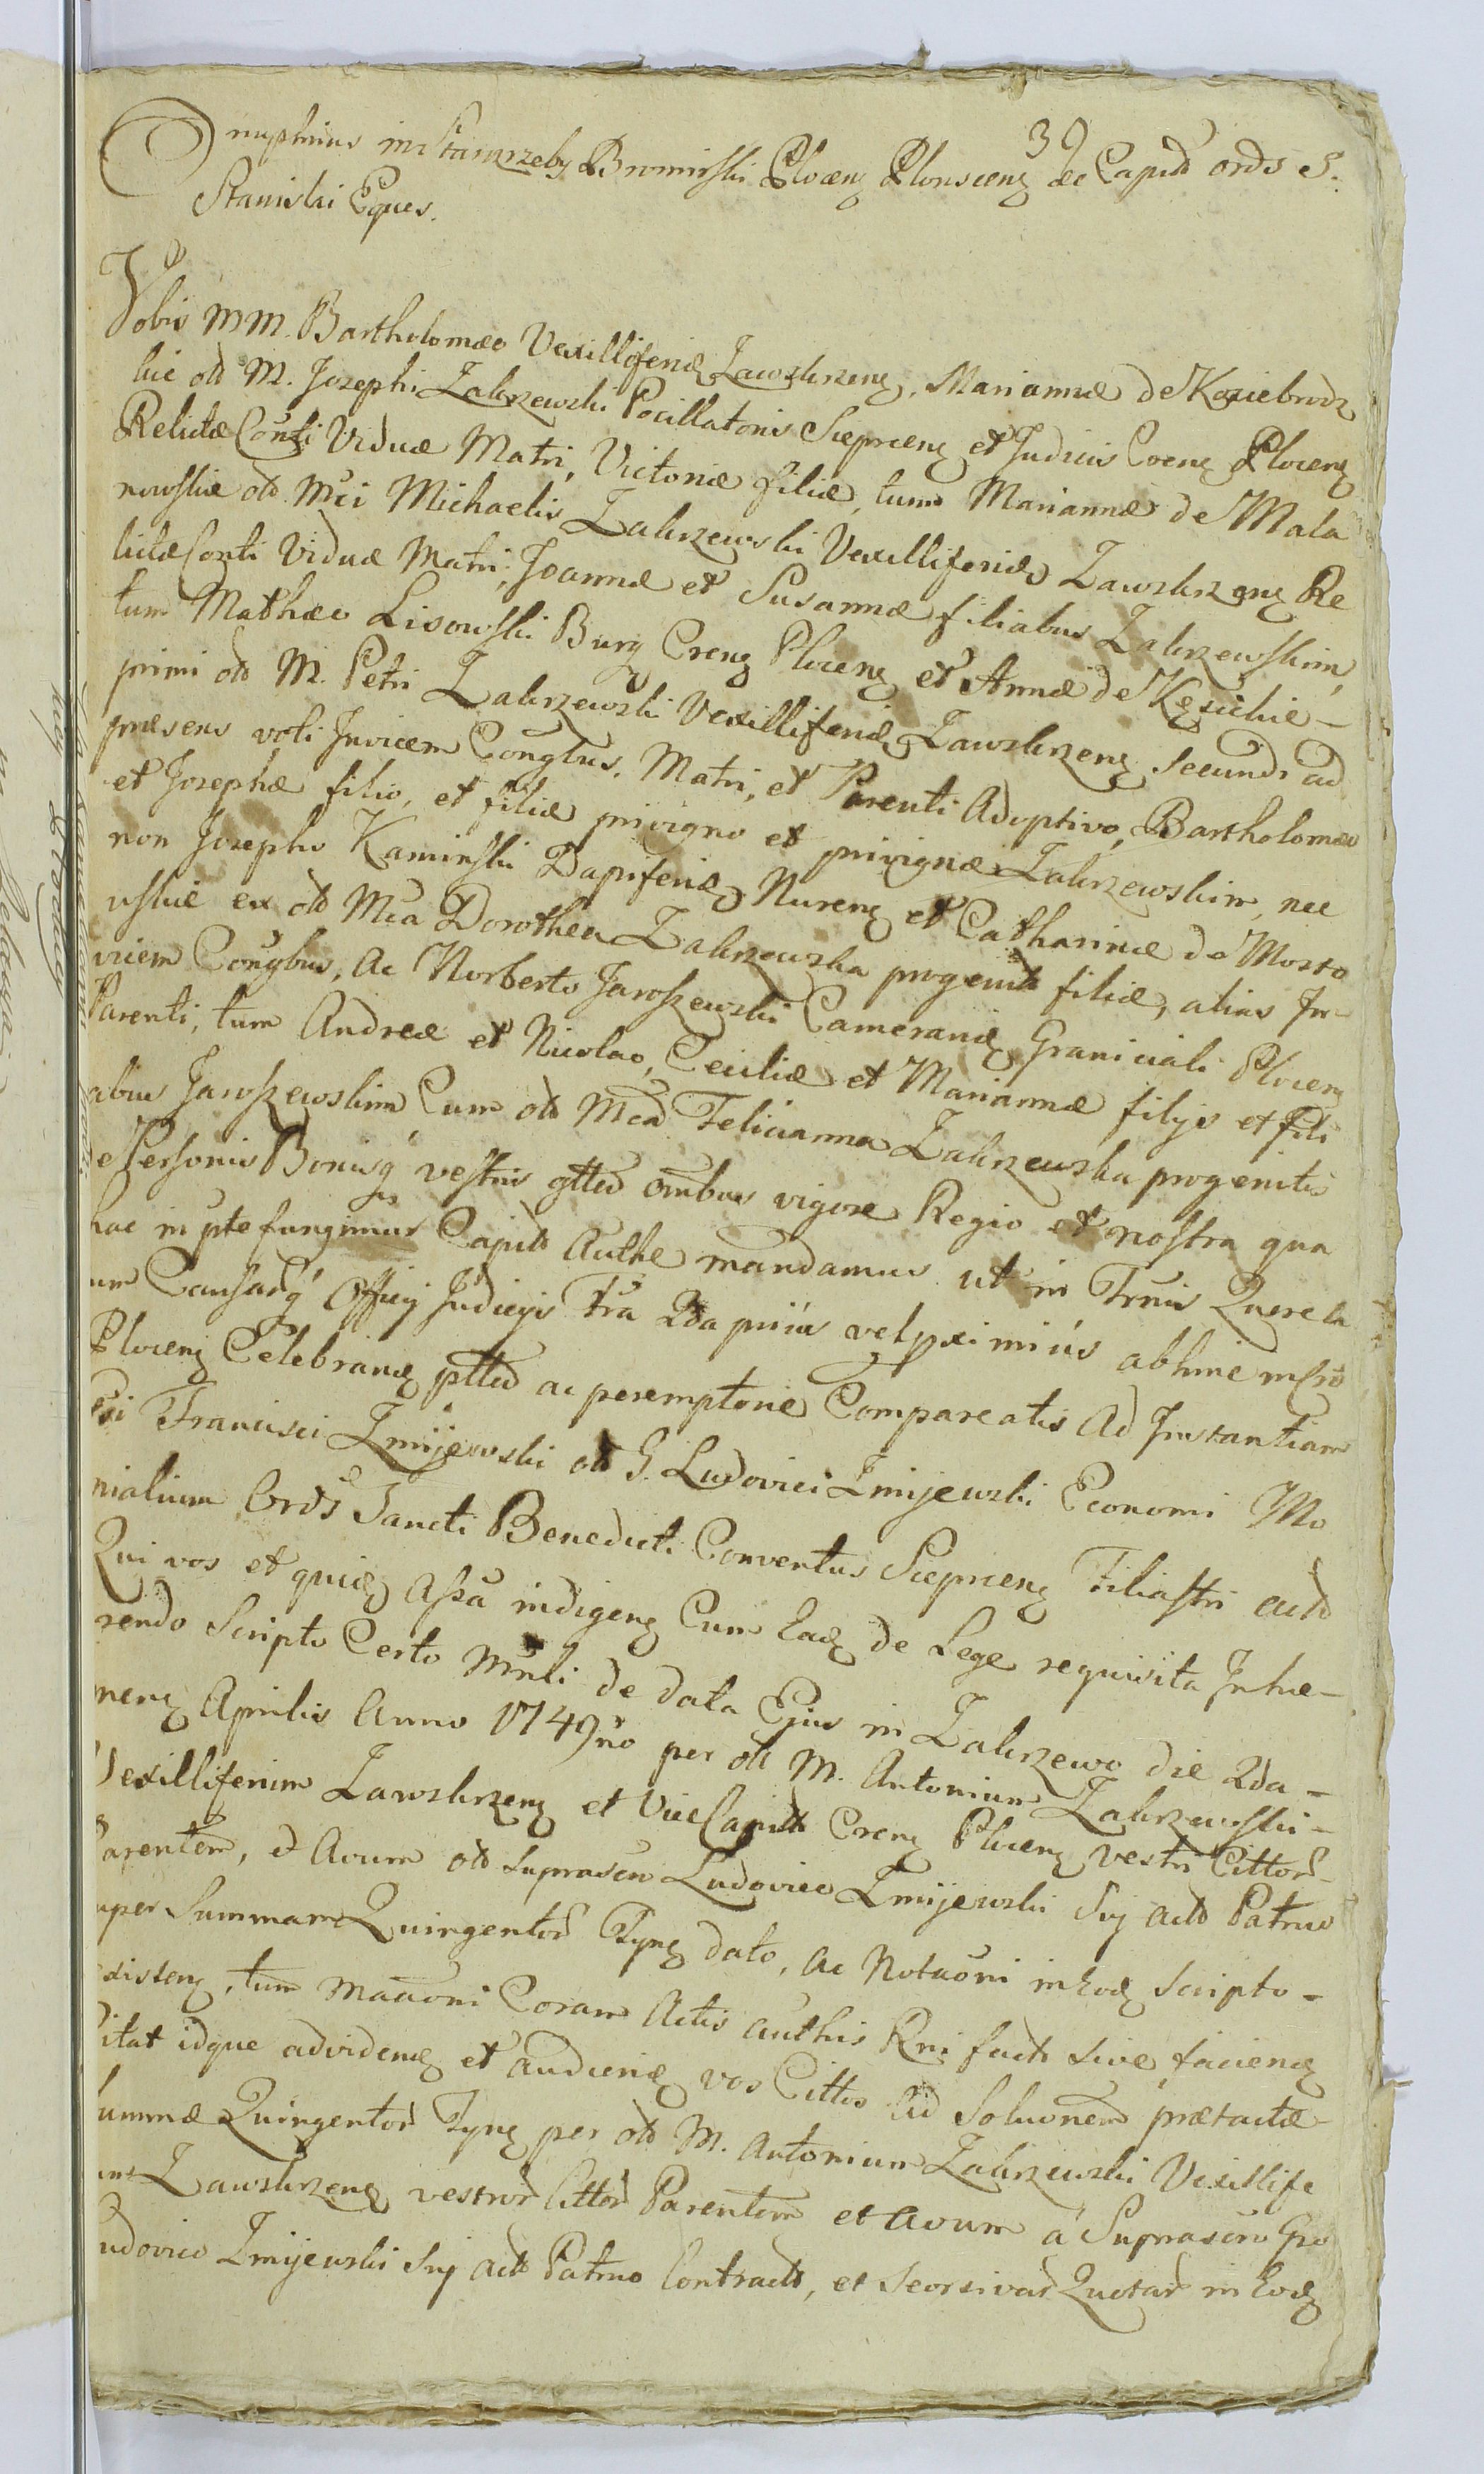 39
Onuphrius in Starorzeby Bromirski Plocenę Plonscenę &c Capitt ords S.
Stanislai Eques.
Vobis MM. Bartholomæo Vexilliferidę Zawskrzenę, Mariannæ de Koziebrodz
kie olt M. Josephi Zakrzewski Pocillatoris Sieprcenę et Judicis Crenę Plocenę
Relictæ Conti Viduæ Matri, Victoriæ filiæ, tum Mariannæ de Mala
nowskie olt Mci Michaelis Zakrzewski Vexilliferidę Zawskrzenę Re
lictæ Conti Viduæ Matri, Joannæ et Susannæ filiabus Zakrzewskim,
tum Mathæo Lisowski Burg Crenę Plocenę et Annæ de Kęsickie -
primi olt M. Petri Zakrzewski Vexilliferidę Zawskrzenę secundi ad
præsens voti Invicem Congbus, Matri, et Parenti Adoptivo, Bartholomæo
et Josephæ filio, et filiæ privigno et privignæ Zakrzewskim, nec
non Josepho Kaminski Dapiferidę Nurenę et Catharinæ de Mosto
wskie ex olt Mca Dorothea Zakrzewska progenita filiæ, alias In-
vicem Congbus, Ac Norberto Jaroszewski Cameranę Graniciali Plocenę
Parenti, tum Andreæ et Nicolao, Ceciliæ et Mariannæ filijs et fili
abus Jaroszewskim Cum olt Mca Felicianna Zakrzewska progenitis
e Personis Bonisq' vestris gtter omibus vigore Regio et nostra qua
hac in pte fungimur Capitt Authe mandamus ut in Trnis Querela
um Causarq' Officij Judicijs Fra 2da priūs vel pximiūs abhinc in Cro
Plocenę Celebranę pttr ac peremptorie Compareatis Ad Instantiam
Gsi Francisci Zmijewski olt G. Ludovici Zmijewski Economi Mo
nialium Ords Sancti Benedicti Conventus Sieprcenę Filiastri actt
Qui vos et quidę Assā indigenę Cum Eadę de Lege requisita Inhæ-
rendo Scripto Certo Mnli de data Ejus in Zakrzewo die 2da -
mensę Aprilis Anno 1749no per olt M. Antonium Zakrzewski -
Vexilliferum Zawskrzenę et ViceCapitt Crenę Plocenę vestr Cittor
Parentem, et Avum olt suprascro Ludovico Zmijewski Sui actt Patruo
uper Summam Quingentor Tynę dato, ac Notaoni in Eodę Scripto -
existenę, tum Macaoni Coram Actis authis Rni fact sive facienę
Citat idque ad videndę et audiendę vos Cittos Ad Soluonem prætactæ
Summæ Quingentor Tynę per olt M. Antonium Zakrzewski Vexillife
um Zawskrzenę vestror Cittor Parentem et Avum a Suprascro Gso
Ludovico Zmijewski Sui actt Patruo Contract, et Seorsivar Quotar in Eodę